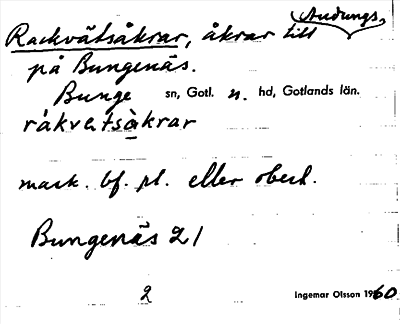 Rackvätsåkrar, åkrar till Audungs,
på Bungenäs.
Bunge sn, Gotl. n. hd, Gotlands län.
råkvetsàkrar
mask. bf. pl. eller obest.
Bungenäs 21
2
Ingemar Olsson 1960